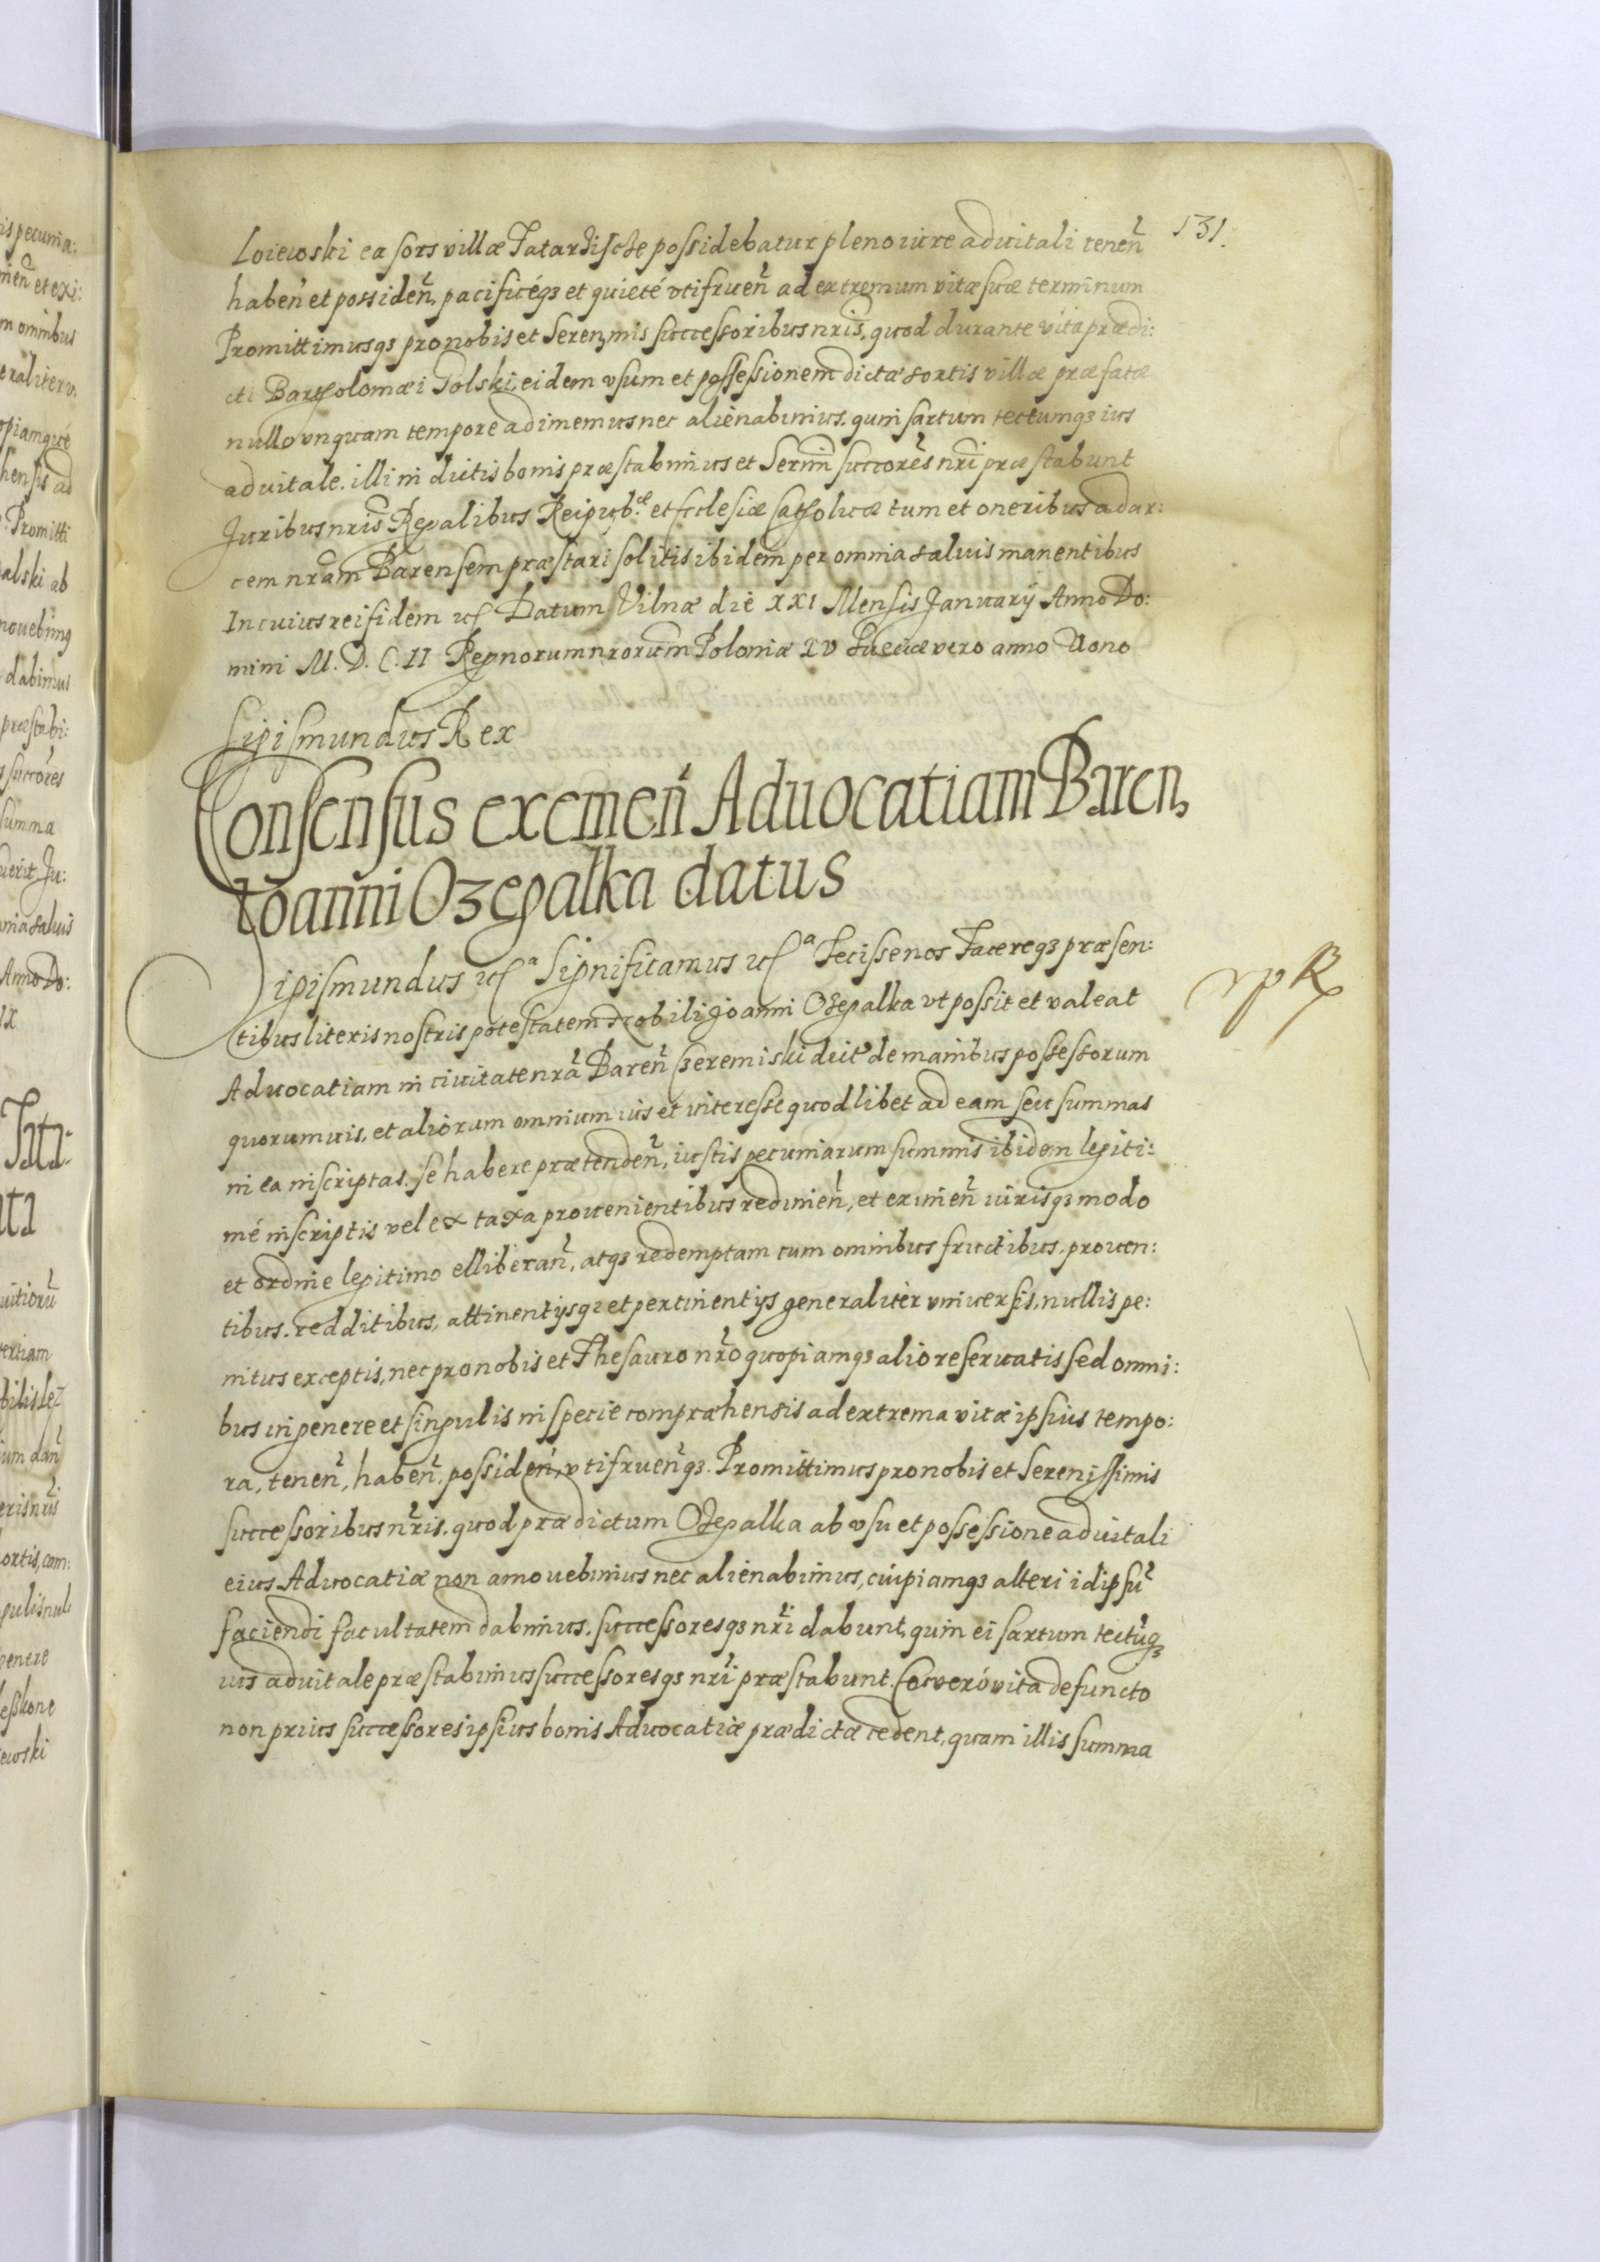 131.
Loiewoski ea sors villæ Tatarzische possidebatur pleno iure aduitali tenen̄
haben̄ et possiden̄, pacificéqȝ et quieté vtifruen̄ ad extremum vitæ suæ terminum
Promittimusqȝ pro nobis et Seren,mis successoribus nris, quod durante vita prædi:
cti Bartholomæi Polski eidem vsum et possessionem dictæ sortis villæ præfatæ
nullo vnquam tempore adimemus nec alienabimus. quin sartum tectumqȝ ius
aduitale. illi in dictis bonis præstabimus et Sermi succores nri præstabunt
Juribus nris Regalibus Reipubcæ et Ecclesiæ Catholicæ tum et oneribus ad ar:
cem nram Barensem præstari solitis ibidem per omnia saluis manentibus
In cuius rei fidem ꝛc Datum Vilnæ die XXI Mensis January Anno Do:
mini M. D. C. II Regnorum nrorum Poloniæ XV Sueciæ vero anno Nono
Sigismundus Rex
Consensus eximen̄ Aduocatiam Baren,
Ioanni Ozegalka datus
Sigismundus ꝛca Significamus ꝛca Fecisse nos Facereqȝ præsen:
tibus literis nostris potestatem Nobili Joanni Ozegalka vt possit et valeat
Aduocatiam in ciuitate nrā Baren̄ Czeremiski dicta de manibus possessorum
quorumuis, et aliorum omnium ius et interesse quodlibet ad eam seu summas
in ea inscriptas. se habere prætenden̄, iustis pecuniarum summis ibidem legiti:
mé inscriptis vel ex taxa prouenientibus redimen̄, et eximen̄ iurisqȝ modo
et ordine legitimo elliberan̄, atqȝ redemptam cum omnibus fructibus, prouen:
tibus. redditibus, attinentijsqȝ et pertinentijs generaliter vniuersis, nullis pe:
nitus exceptis, nec pro nobis et Thesauro nro quopiamqȝ alio reseruatis sed omni:
bus in genere et singulis in specie compræhensis ad extrema vitæ ipsius tempo:
ra, tenen̄, haben̄, possiden̄, vtifruen̄qȝ. Promittimus pro nobis et Serenissimis
successoribus nris. quod prædictum Ozegalka ab vsu et possessione aduitali
eius Aduocatiæ non amouebimus nec alienabimus, cuipiamqȝ alteri id ipsū
faciendi facultatem dabimus. successoresqȝ nri dabunt, quin ei sartum tectūqȝ
ius aduitale præstabimus successoresqȝ nri præstabunt. Eo veró vita defuncto
non prius successores ipsius bonis Aduocatiæ prædictæ cedent, quam illis summa